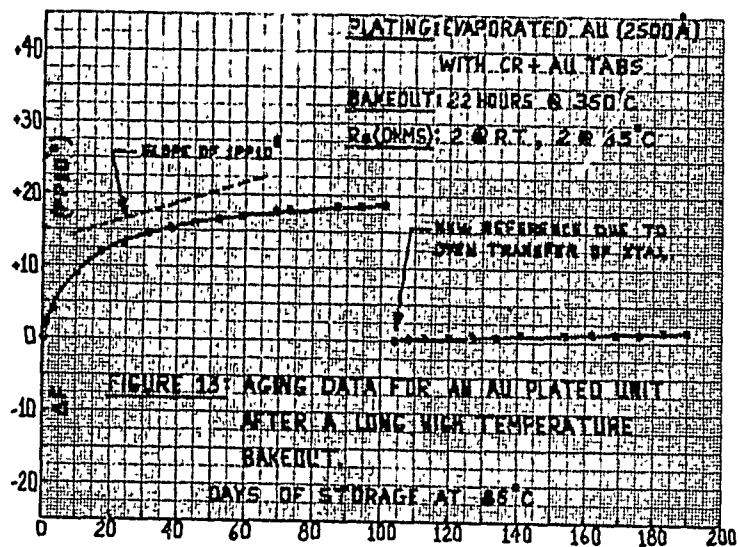 PLATING: EVAPORATED AU (2500Å)
WITH CR + AU TABS
BAKEOUT: 22 HOURS @ 350°C
(OHMS): 2 @ R.T., 2 @ 85°C
SLOPE OF 1PP10
NEW REFERENCE DUE TO
OVEN TRANSFER OF XTAL.
+40
+30
+20
+10
0
-10
-20
ΔF
FIGURE 13: AGING DATA FOR AN AU PLATED UNIT
AFTER A LONG HIGH TEMPERATURE
BAKEOUT.
DAYS OF STORAGE AT 85°C
0 20 40 60 80 100 120 140 160 180 200